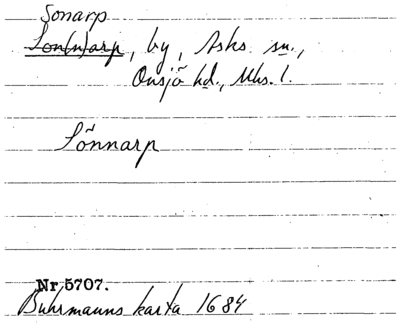 Sonarp
Son(n)arp, by, Asks. sn.,
Onsjö hd., Mhs. l.
Sönnarp
Nr 5707.
Buhrmanns karta 1684